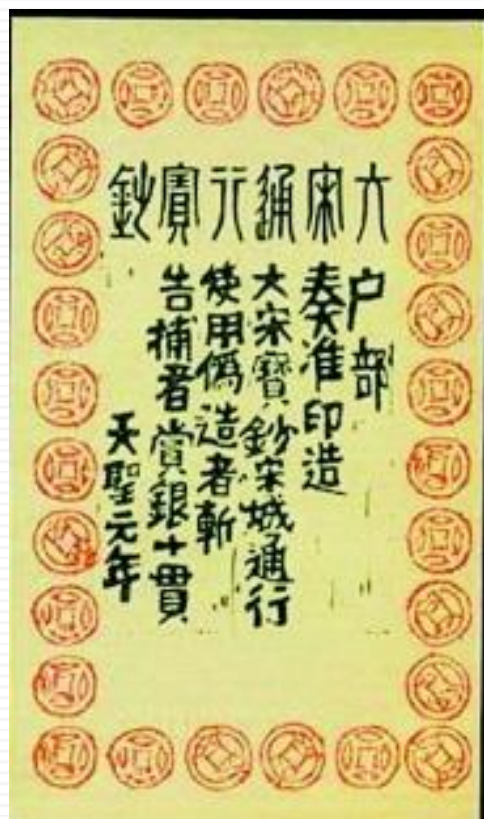 大宋通行寶鈔
户部
奏准印造
大宋寶鈔宋城通行
使用僞造者斬
告捕者賞銀十貫
天聖元年